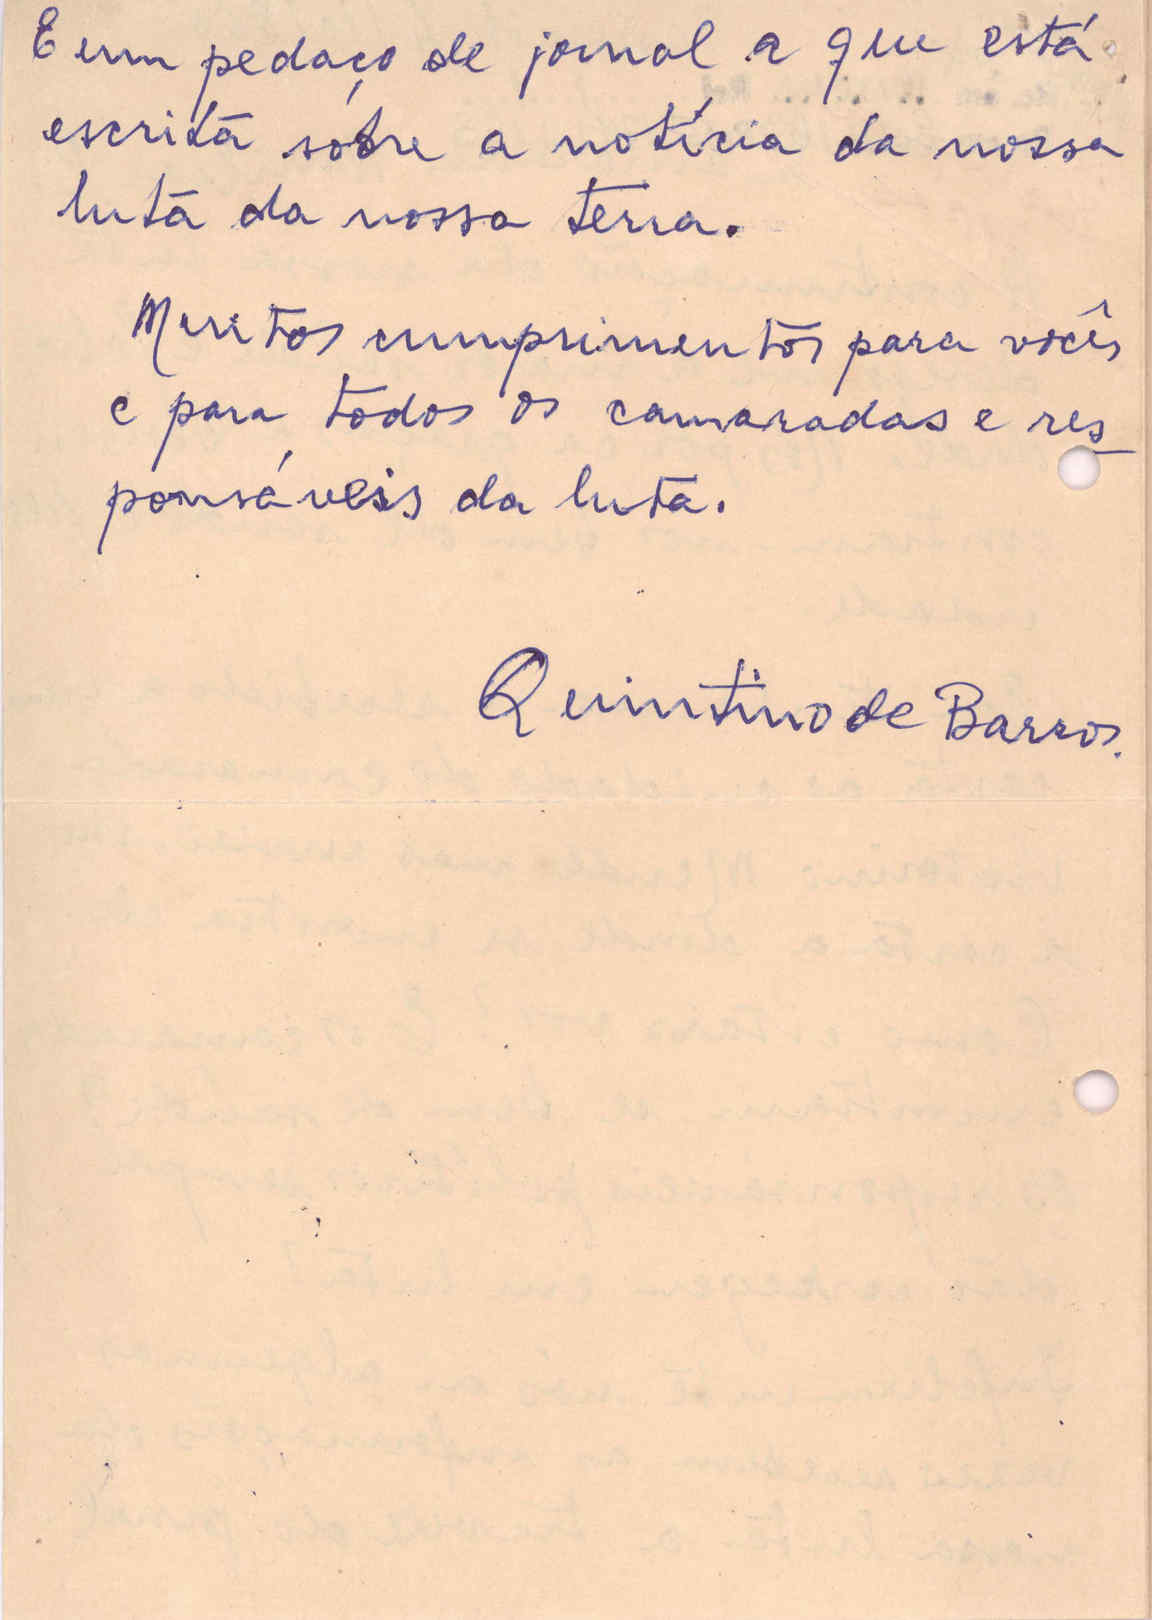 E um pedaço de jornal a que está
escrita sôbre a notícia da nossa
luta da nossa terra.
Muitos cumprimentos para vocês
e para todos os camaradas e res
ponsáveis da luta.
Quintino de Barros.